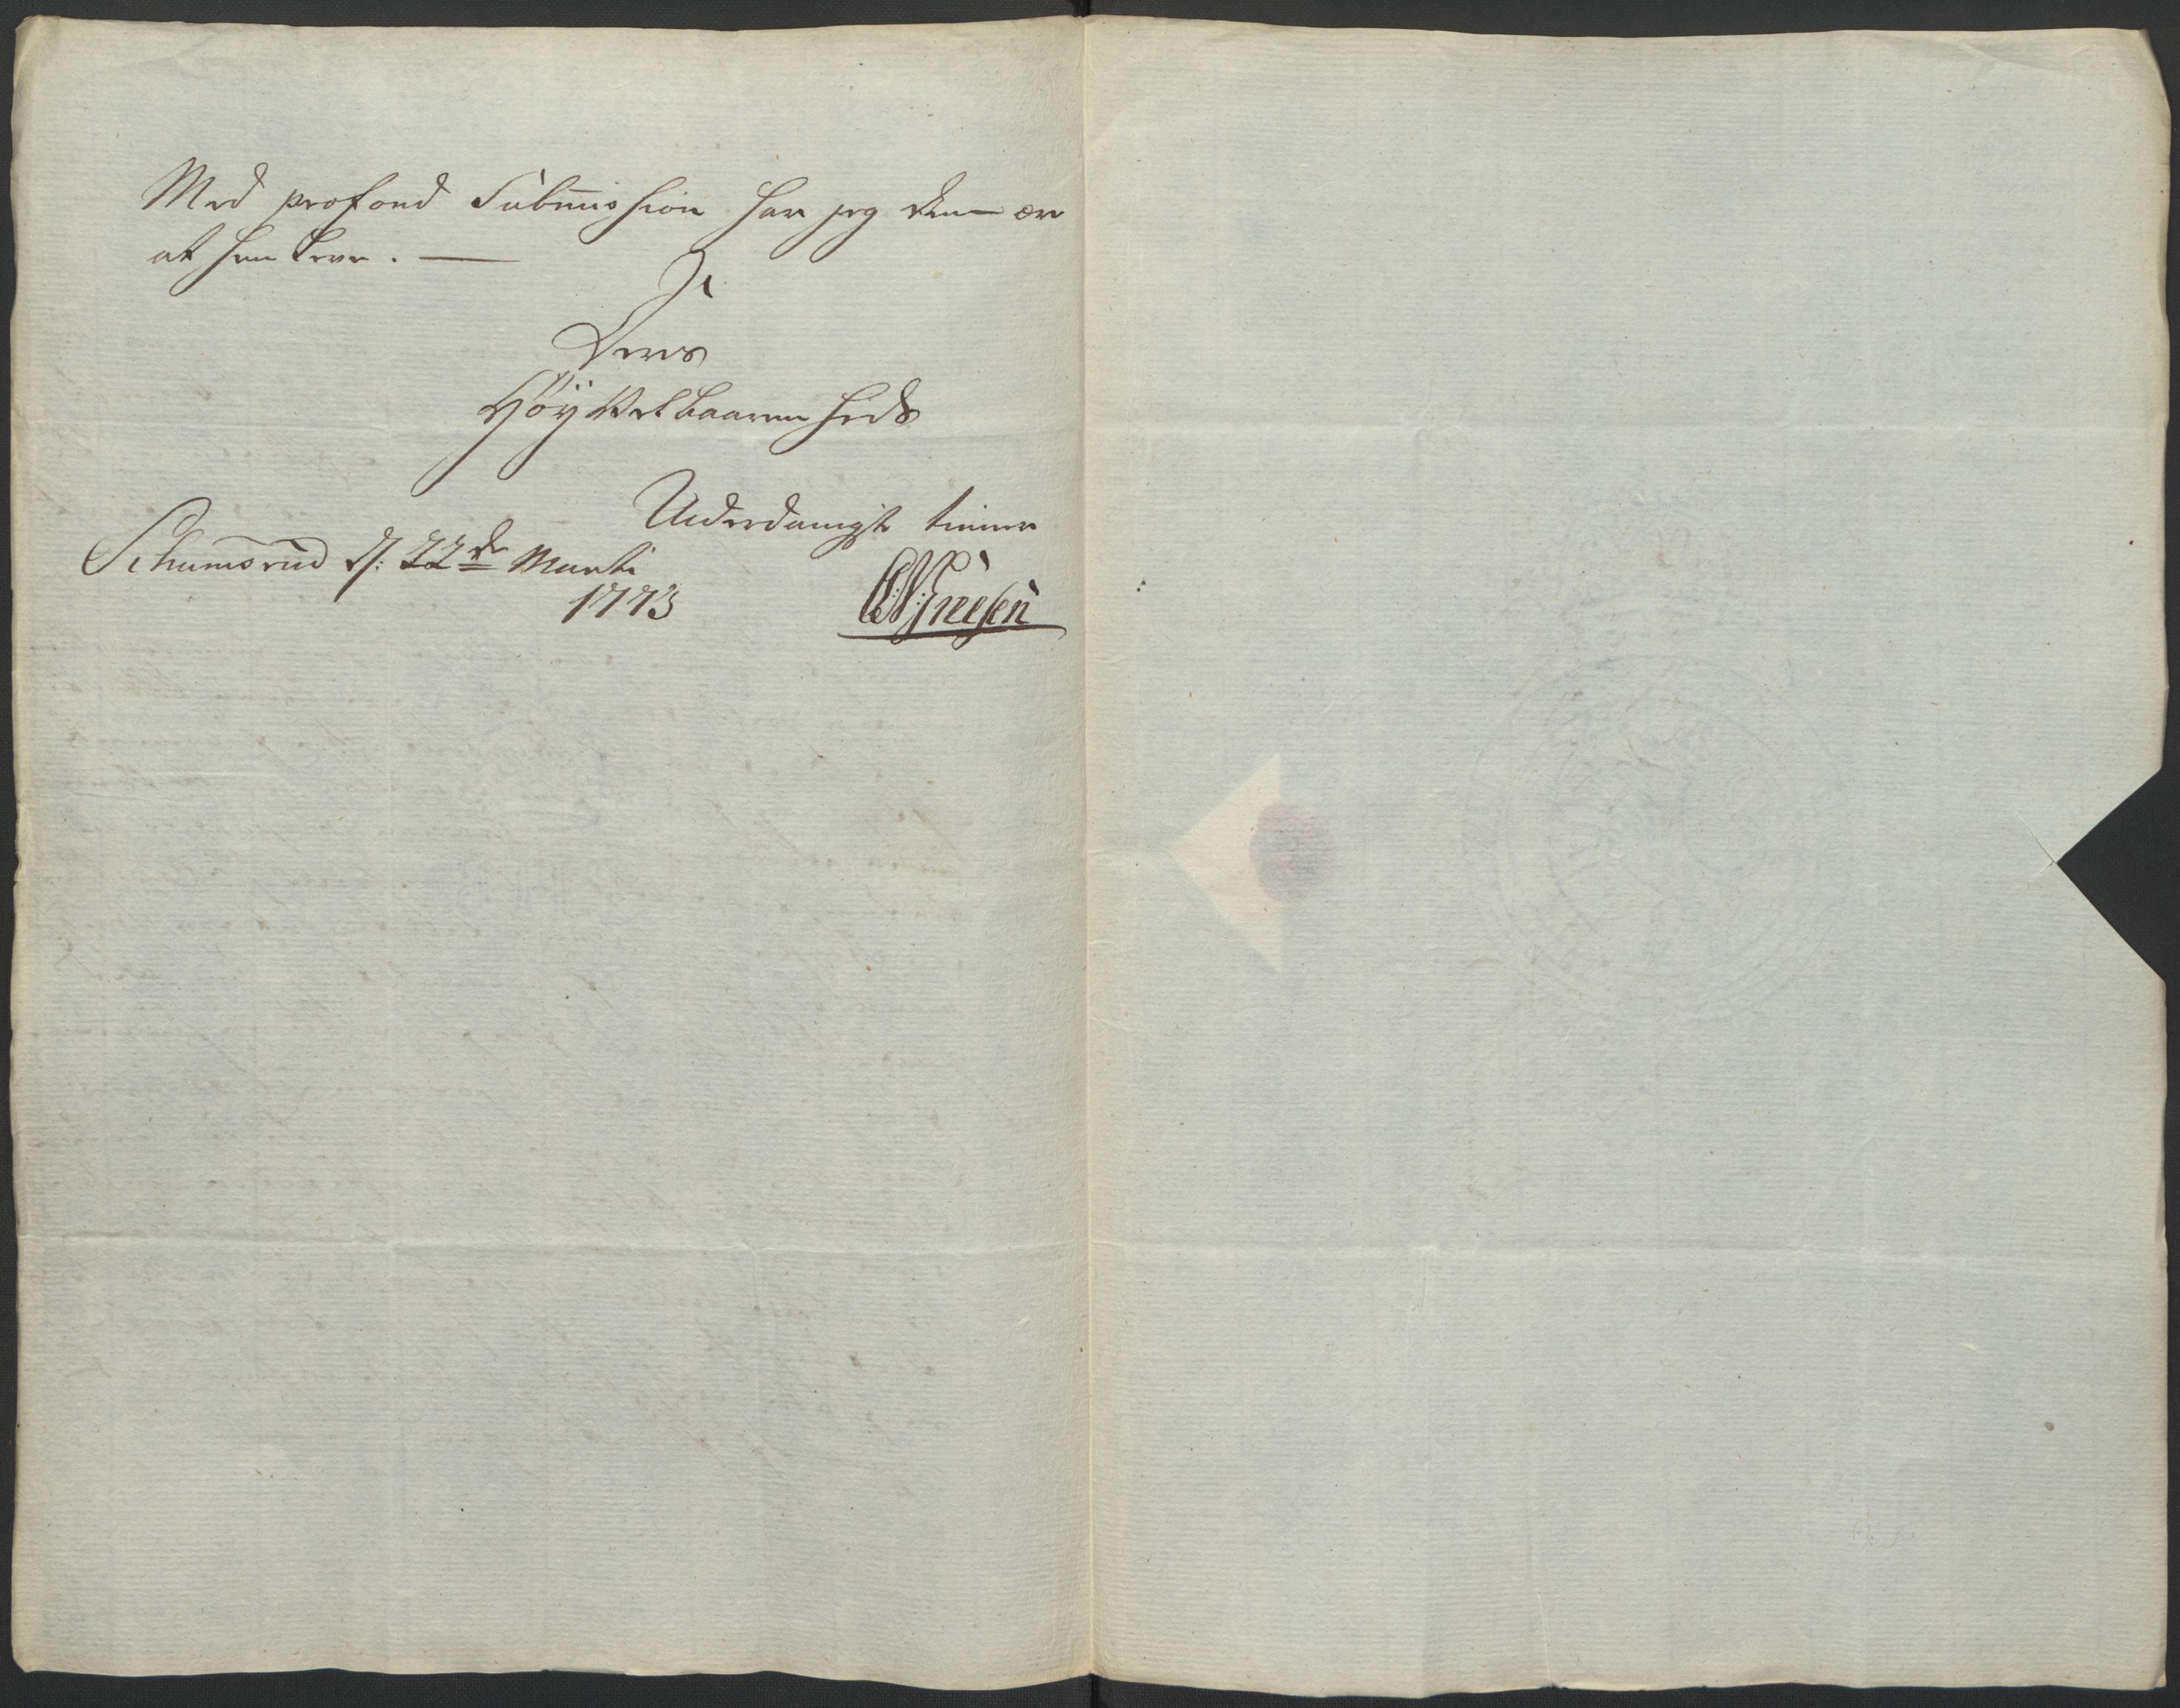 Med profond Submission har jeg den ære
at henleve. —
Deres
Høÿ Velbaarenheds
Underdanigste tienner
Schumsrud d: 22de Marti
1773